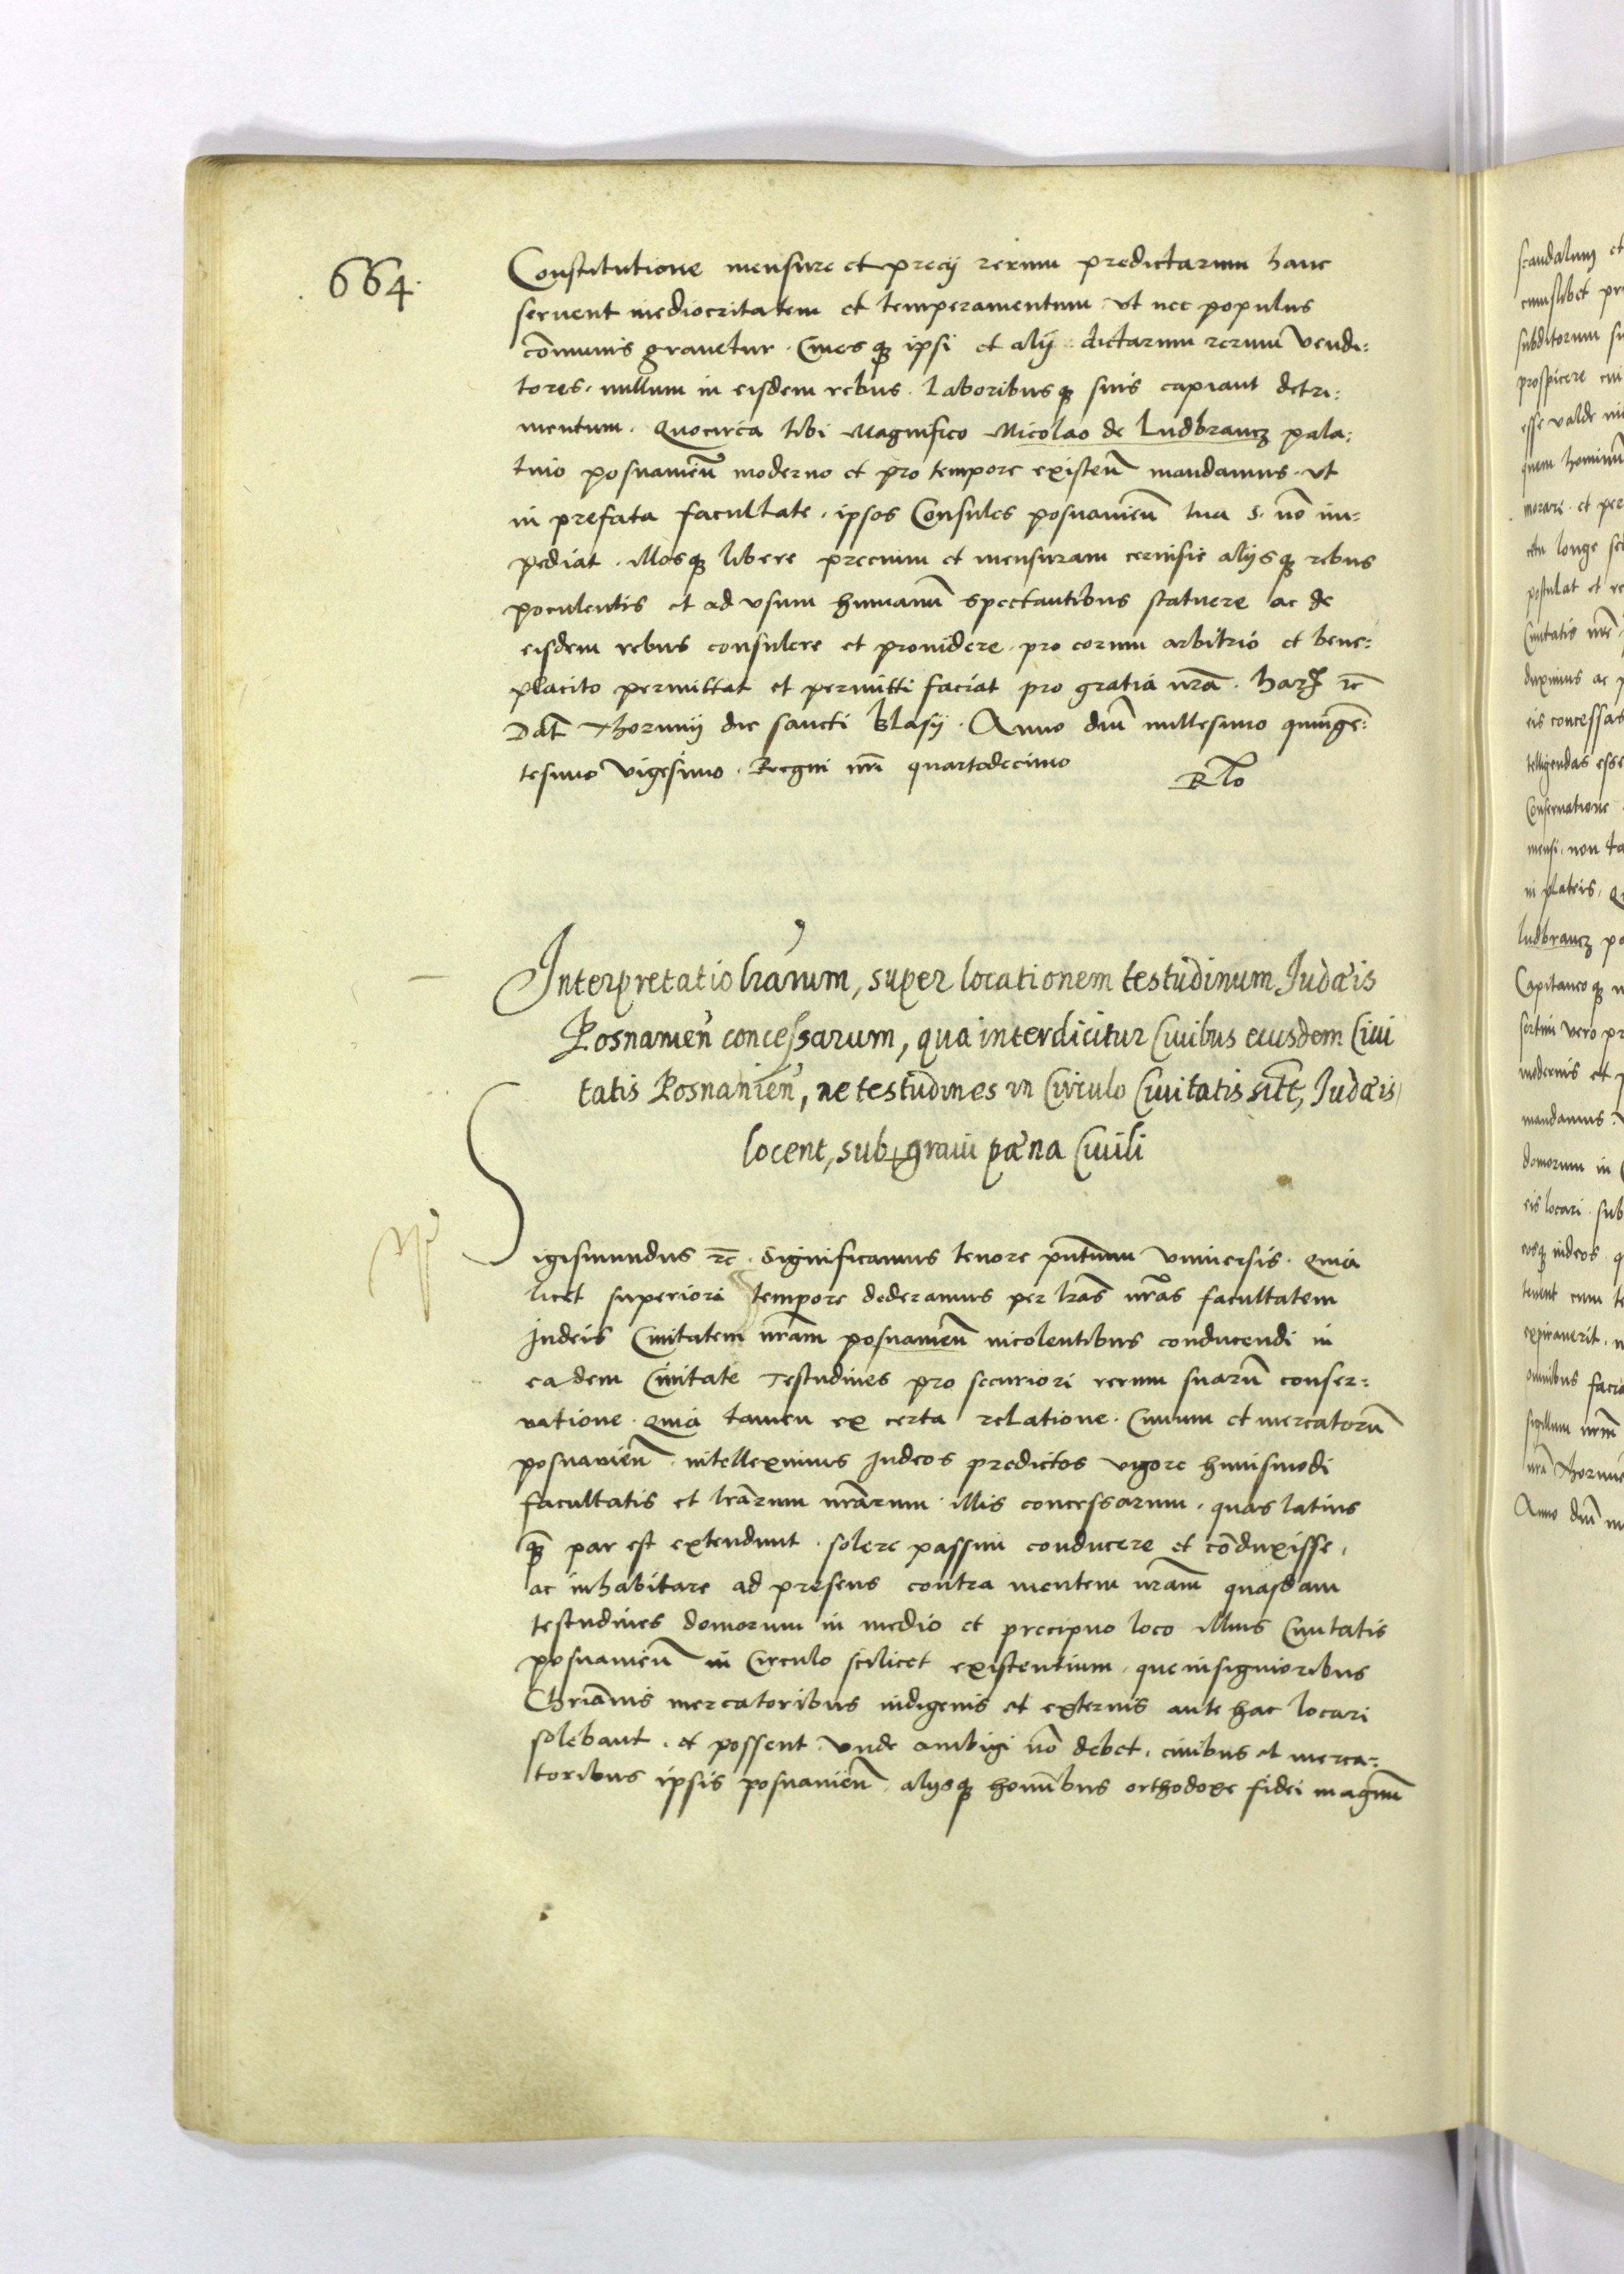 664.
Constitutione mensure et precij rerum predictarum hanc
seruent mediocritatem et temperamentum vt nec populus
co̅munis grauetur. Ciues qȝ ipsi et alij dictarum rerum vendi:
tores. nullum in eisdem rebus. Laboribusqȝ suis capiant detri:
mentum. Quocirca tibi Magnifico Nicolao de Ludbrancz pala:
tino posnanien̅ moderno et pro tempore existen̅ mandamus. vt
in prefata facultate. ipsos Consules posnanien̅ tua S. no̅ im:
pediat. illosqȝ libere precium et mensuram ceruisie alijsqȝ rebus
poculentis et ad vsum humanu̅ spectantibus statuere ac de
eisdem rebus consulere et prouidere. pro eorum arbitrio et bene:
placito permittat et permitti faciat pro gratia nr̅a. harꝝ rc̅
Dat̅ Thorunij die sancti Blasij. Anno dn̅i millesimo quinge̅:
tesimo vigesimo. Regni nr̅i quartodecimo
Rl̅o
Interpretatio lr̅arum, super locationem testudinum Judæis
Posnanien̅ concessarum, qua interdicitur Ciuibus eiusdem Ciui
tatis Posnanien̅, ne testudines in Circulo Ciuitatis sit̅, Judæis
locent, sub graui pæna Ciuili
Sigismundus rc̅. Significamus tenore pn̅tium vniuersis. Quia
licet superiori tempore dederamus per lr̅as nr̅as facultatem
Judeis Ciuitatem nr̅am posnanien̅ incolentibus conducendi in
eadem Ciuitate Testudines pro securiori rerum suaru̅ conser:
uatione. Quia tamen ex certa relatione. Ciuium et mercatoru̅
posnanien̅. intelleximus Judeos predictos vigore huiusmodi
facultatis et lr̅arum nr̅arum illis concessarum. quas latius
qȝ̅ par est extendunt. solere passim conducere et co̅duxisse,
ac inhabitare ad presens contra mentem nr̅am quasdam
testudines domorum in medio et precipuo loco illius Ciuitatis
posnanien̅ in Circulo scilicet existentium. que insignioribus
Chri̅anis mercatoribus indigenis et externis ante hac locari
solebant. et possent. vnde ambigi no̅ debet. ciuibus et merca:
toribus ipsis posnanien̅ alijsqȝ homi̅bus orthodoxe fidei magnu̅
scandalum et
subditorum
prospicere
esse valde
quem
morari. et per
longe
postulat et
Ciuitatis nr̅e
duximus ac
eis concessas
telligendas esse
Conseruatione
mensi. non
in plateis.
Ludbrancz
Capitaneoqȝ
vero
modernis et
mandamus.
domorum in
eis locari. sub
eosqȝ iudeos
tenent cum
expirauerit.
omnibus
sigillum nr̅m
Anno dn̅i